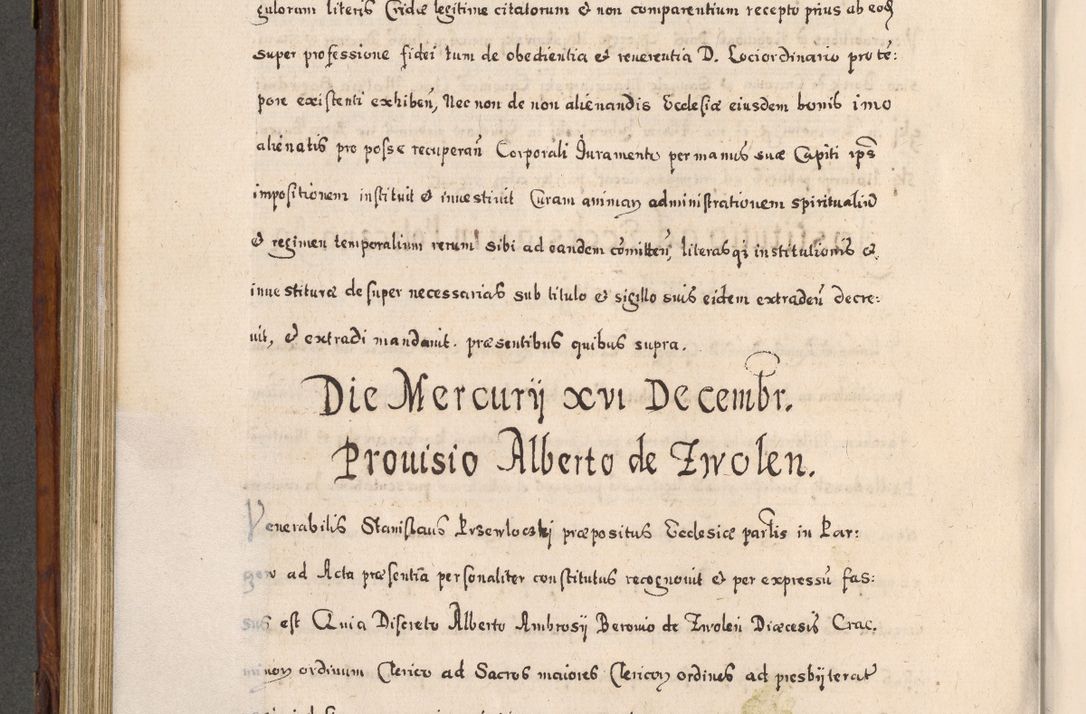 gulorum literis Cridæ legitime citatorum et non comparentium recepto prius ab eodē
super professione fidei tum de obedientia et reuerentia D. Lociordinario pro tē:
pore existenti exhibeñ, Nec non de non alienandis Ecclesiæ eiusdem bonis imo
alienatis pro posse recuperañ Corporali Iuramento per manus suæ Capiti ips̄
impositionem instituit et inuestiuit Curam animaɤ administrationem spiritualiū
et regimen temporalium rerum sibi ad eandem com̄itteñ, literasqȝ institutionis et
inuestituræ desuper necessarias sub titulo et sigillo suis eidem extradeñ decre:
uit, et extradi mandauit. præsentibus quibus supra.
Die Mercurij xvi Decembr.
Prouisio Alberto de Zwolen.
Venerabilis Stanislaus Przewloczkj præpositus Ecclesiæ partis in Par:
gow ad Acta præsentia personaliter constitutus recognouit et per expressū fas:
sus est Quia Discreto Alberto Ambrosij Berowio de Zwoleń Diæcesis Crac.
minoɤ ordinum Clerico ad Sacros maiores Clericoɤ ordines ad presbijterat